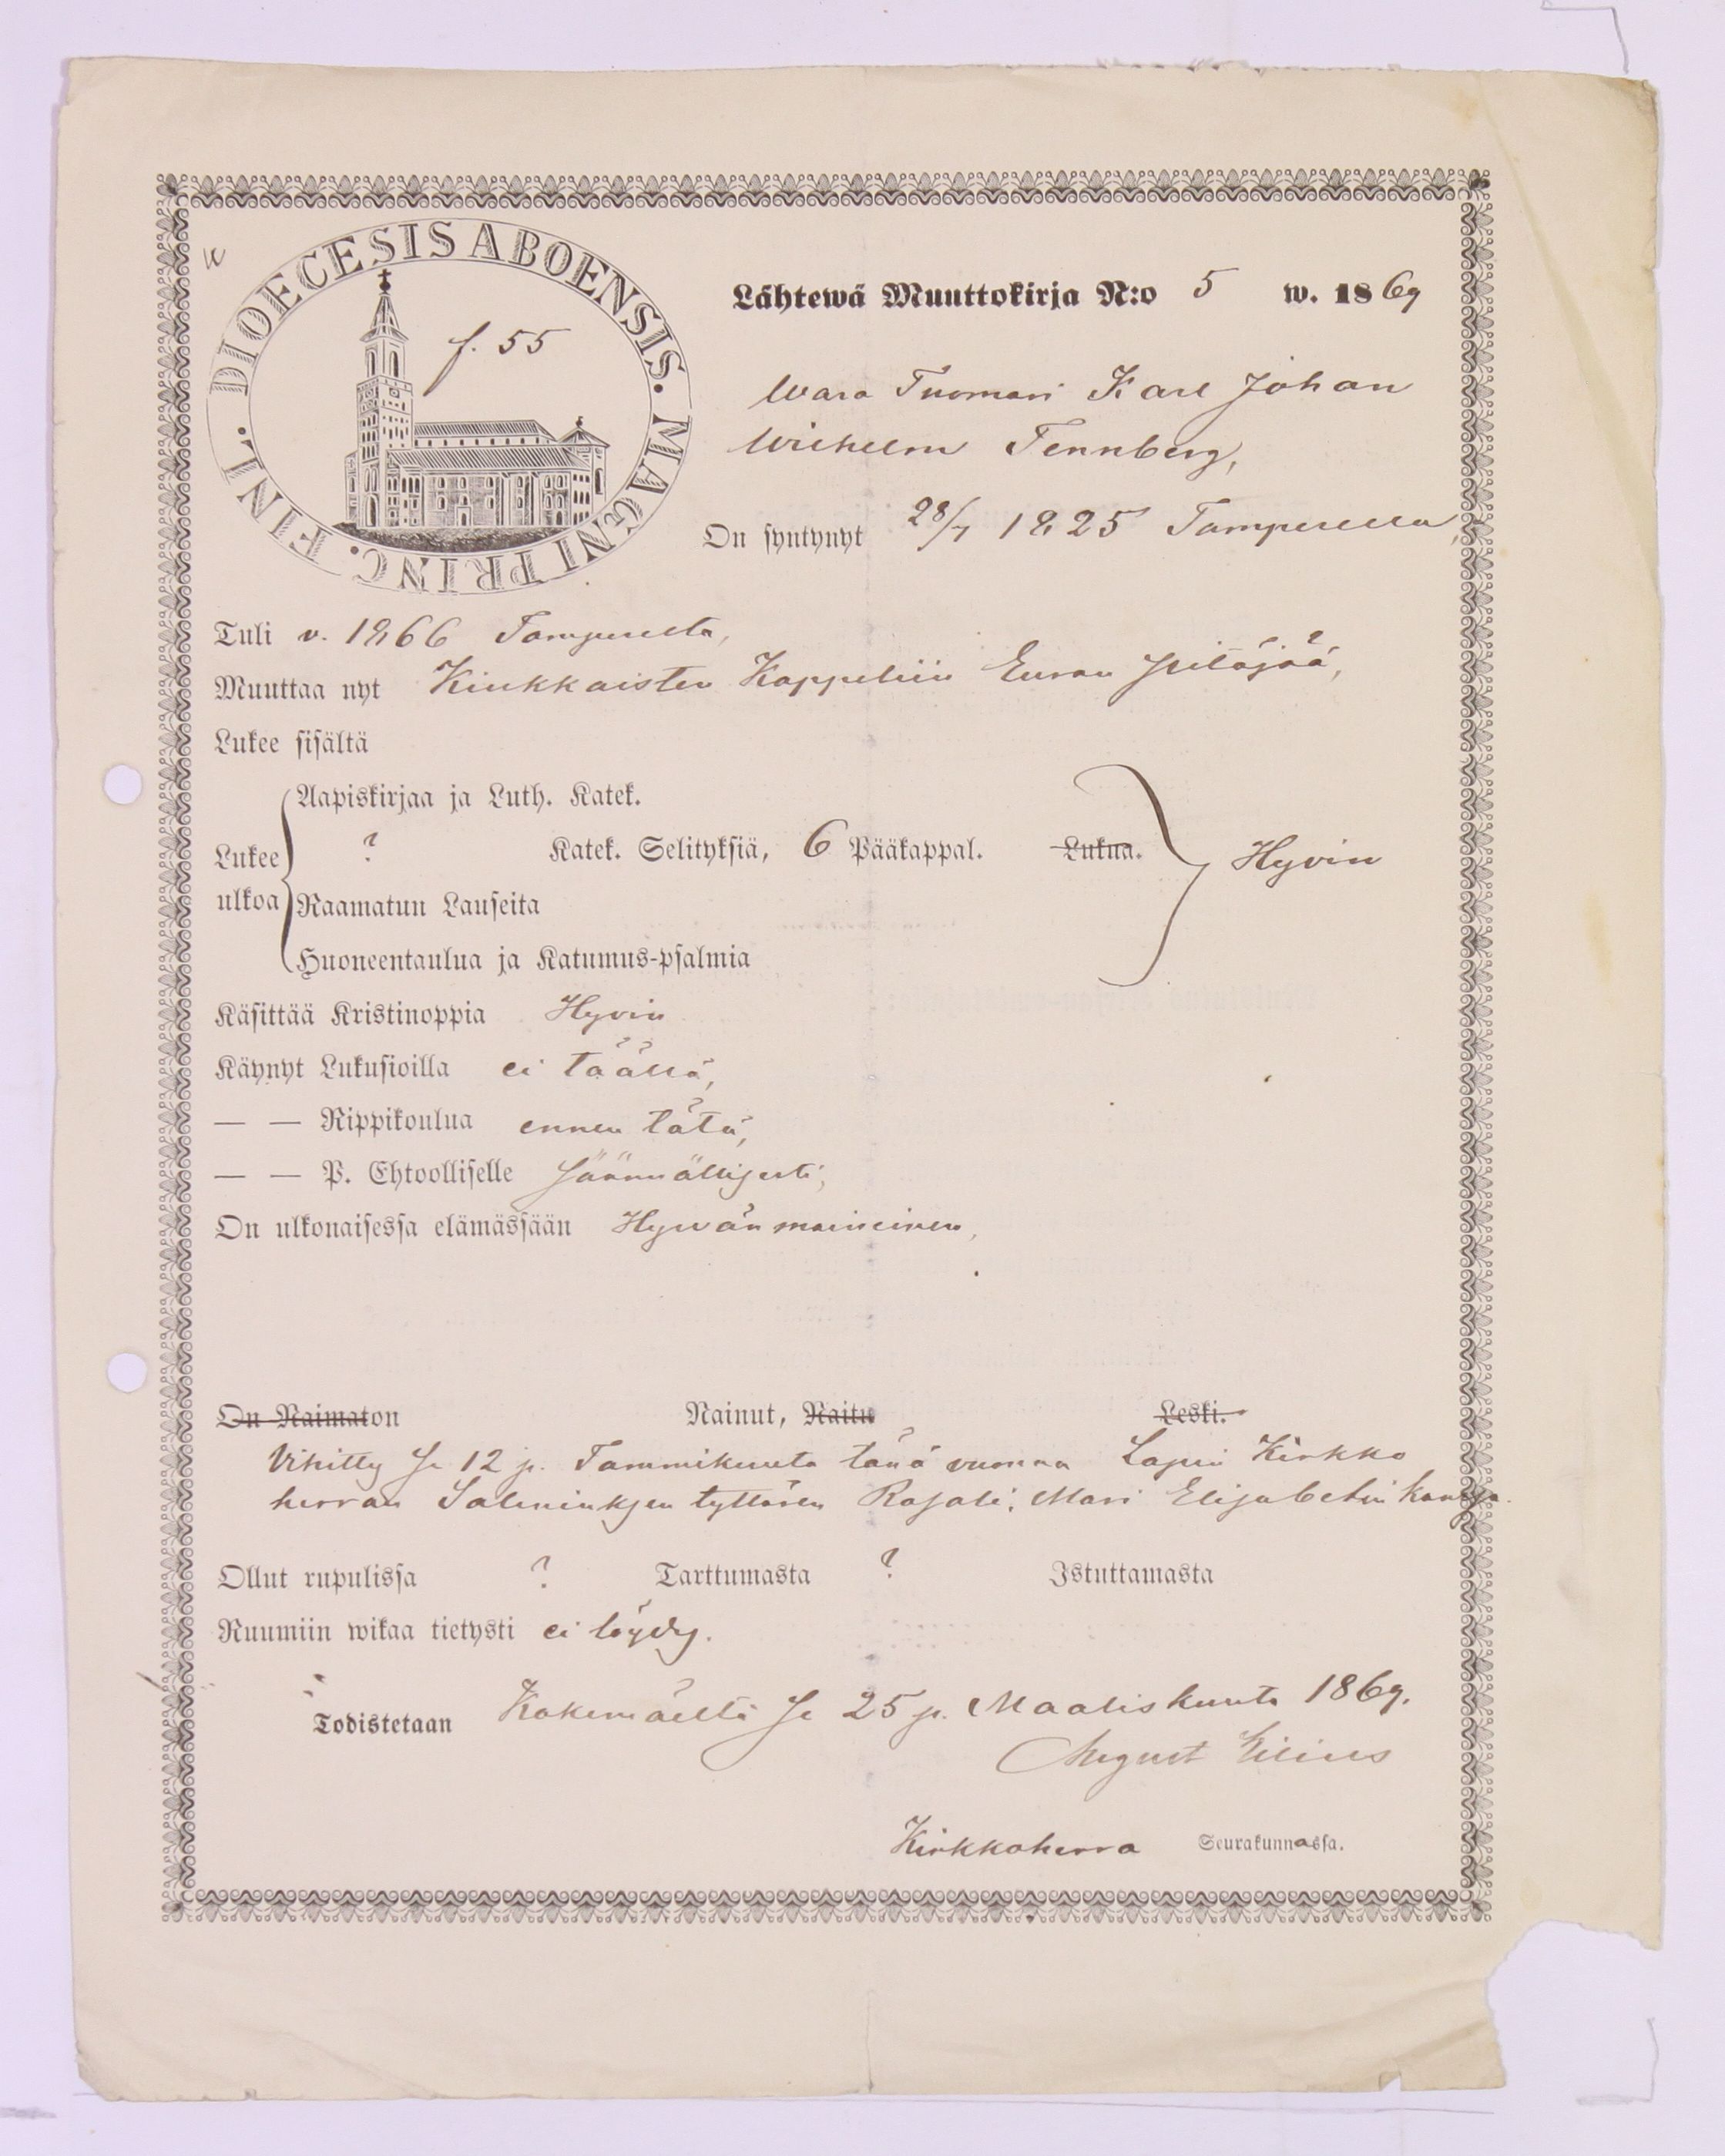 DIOECESIS ABOENSIS. MAGNI PRINC. FINL.
f. 55
Lähtewä Muuttokirja N:o 5 w. 1869
Wara Tuomari Karl Johan
Wilhelm Tennberg,
On syntynyt 28/7 1825 Tamperella,
Tuli v. 1866 Tampereelta,
Muuttaa nyt Kiukkaisten Kappeliin Euran pitäjää,
Lukee sisältä
Aapiskirjaa ja Luth. Katek.
Lukee ulkoa ? Katek. Selityksiä, 6 Pääkappal. Lukua. Hyvin
Raamatun Lauseita
Huoneentaulua ja Katumus-psalmia
Käsittää Kristinoppia Hyvin
Käynyt Lukusioilla ei täällä,
— — Rippikoulua ennen tätä,
— — P. Ehtoolliselle säännöllisesti,
On ulkonaisessa elämässään Hywän maineinen,
On Naimaton Nainut, Naitu Leski.
Vihitty se 12 p. Tammikuuta tänä vuonna Lapin Kirkko
herran Saleniuksen tyttären Rosali, Mari Elisabetin kanssa.
Ollut rupulissa ? Tarttumasta ? Istuttamasta
Ruumiin wikaa tietysti ei löydy.
Todistetaan Kokemäeltä se 25 p. Maaliskuuta 1869.
August Lilius
Kirkkoherra Seurakunnassa.